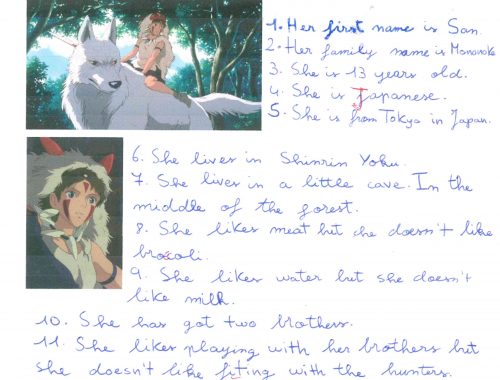 1. Her first name is San.
2. Her family name is Mononoke
3. She is 13 years old.
4. She is Japanese.
5. She is from Tokyo in Japan.
6. She lives in Shinrin Yoku.
7. She lives in a little cave. In the
middle of the forest.
8. She likes meat but she doesn't like
broccoli.
9. She likes water but she doesn't
like milk.
10. She has got two brothers.
11. She likes playing with her brothers but
she doesn't like fiting with the hunters.